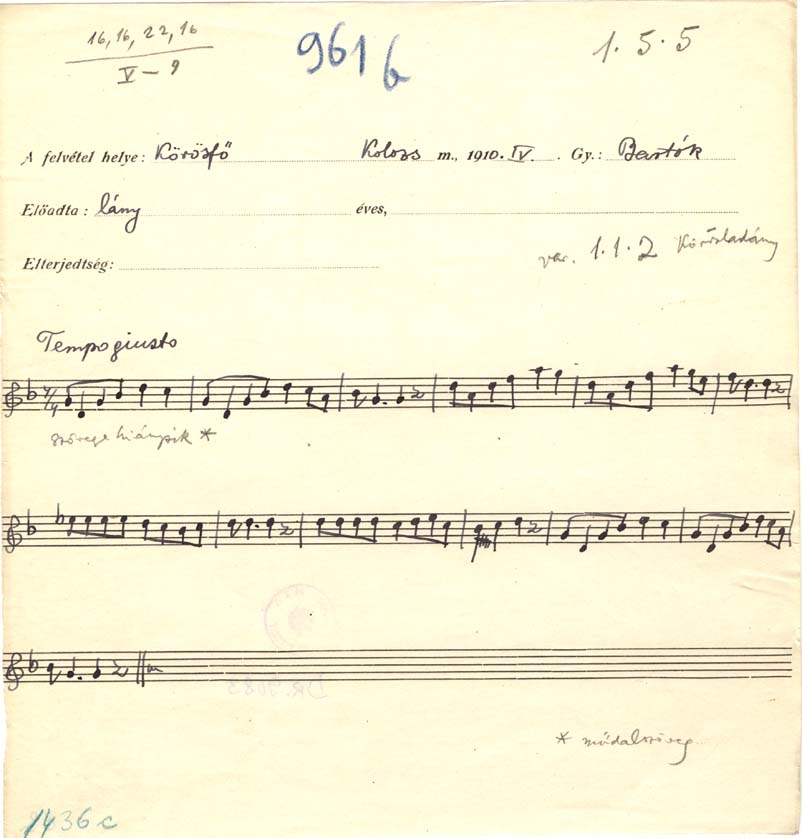 16, 16, 22, 16
V – 9
961 b
1. 5. 5
A felvétel helye: Körösfő Kolozs m., 1910. IV. Gy.: Bartók
Előadta: lány éves,
Elterjedtség:
var. 1. 1. 2 Körösladány
Tempo giusto
2/4
szövege hiányzik *
* műdalszöveg
1436 c